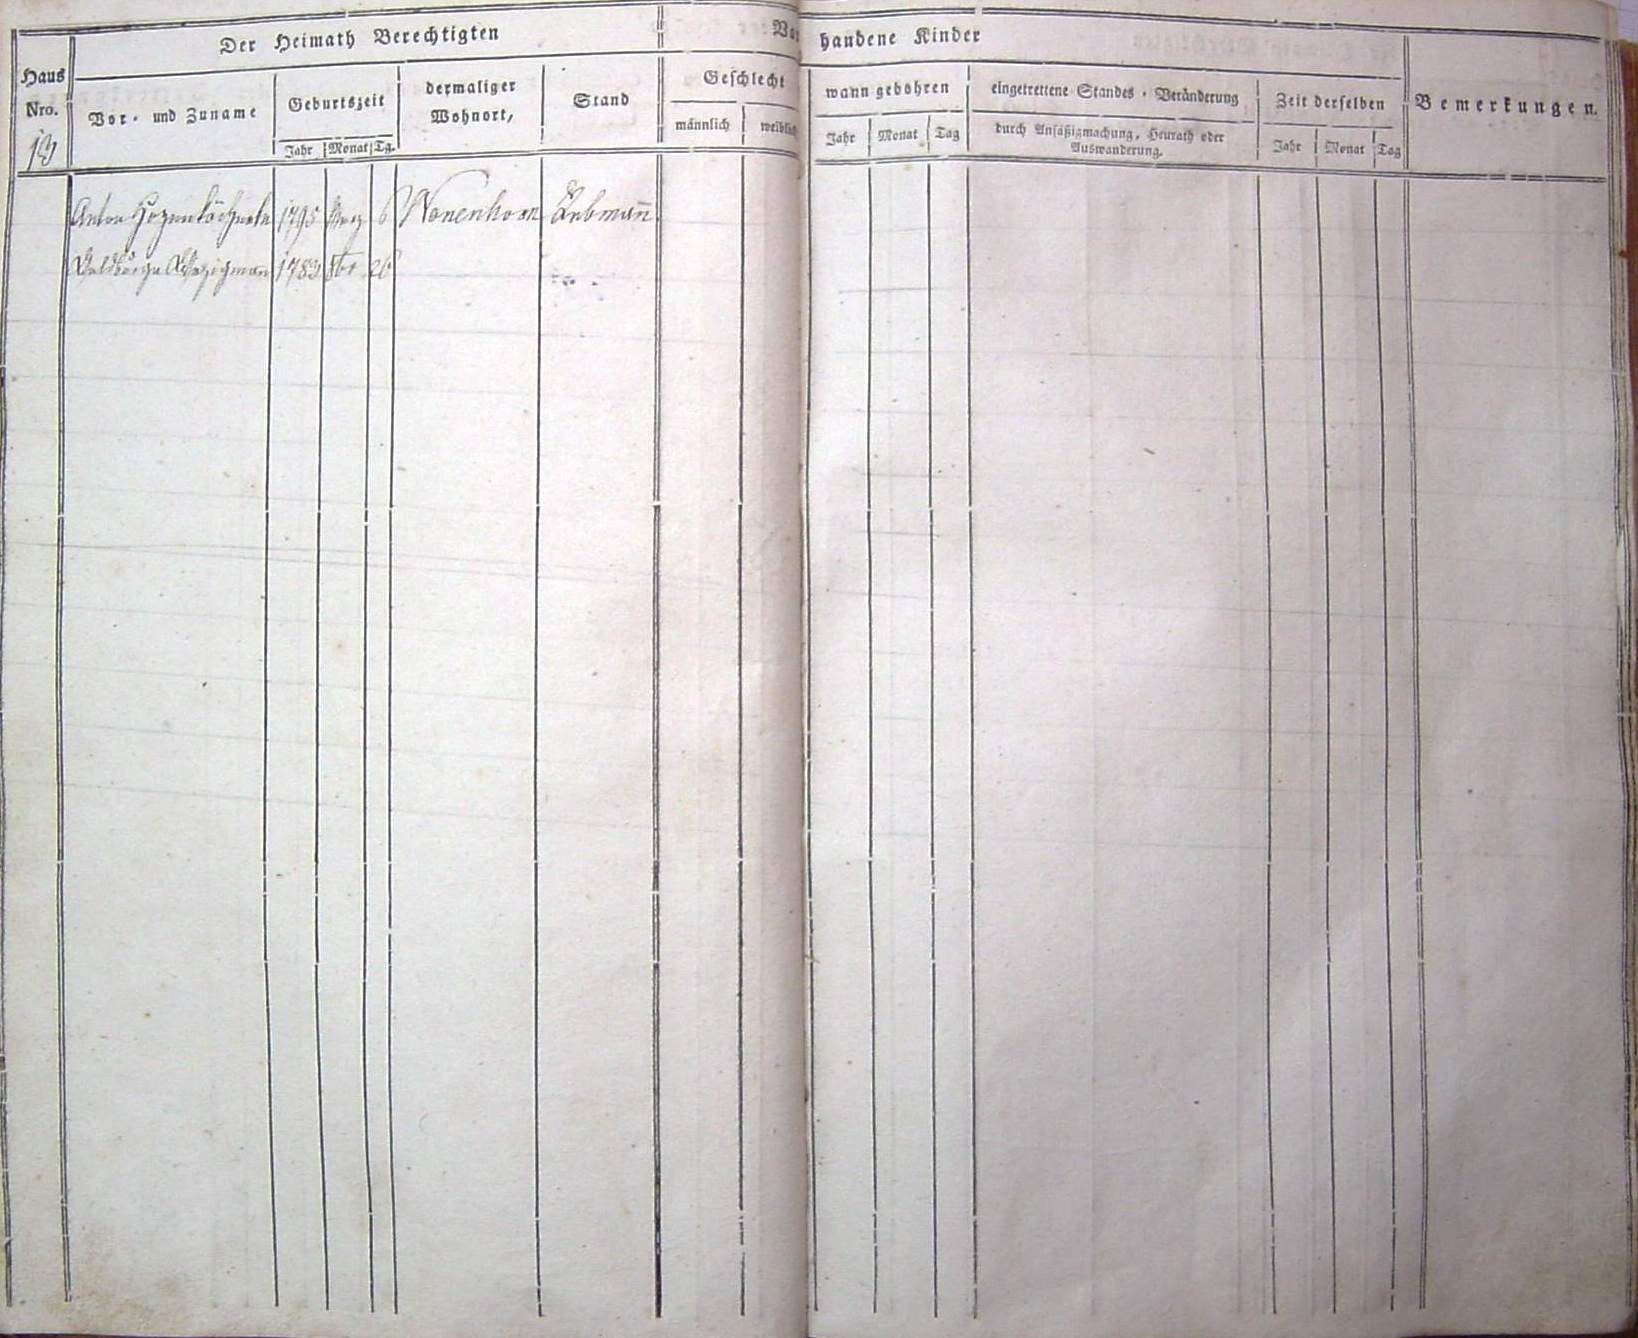 Der Heimath Berechtigten
Vorhandene Kinder
Haus Nro.
Vor- und Zuname
Geburtszeit
Jahr Monat Tg.
dermaliger Wohnort,
Stand
Geschlecht
männlich weiblich
wann gebohren
Jahr Monat Tag
eingetrettene Standes-Veränderung
durch Ansäßigmachung, Heurath oder
Auswanderung.
Zeit derselben
Jahr Monat Tag
Bemerkungen.
Anton 1795 6 Nonenhorn Rebmann
1783 26